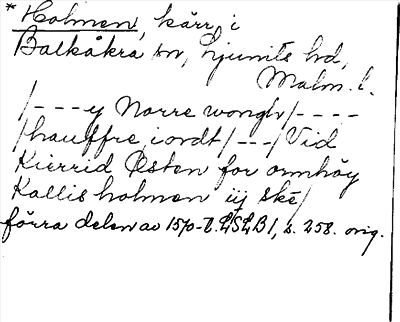 * Holmen, kärr, i
Balkåkra sn, Ljunits hd,
Malm. l.
/---y Norre wongh/----
/hauffre, iordt/---/Vid
Kierrid Østen for ormhöy
Kallis holmen iij ske/
förra delen av 1570-t. LSLB 1, s. 258. orig.